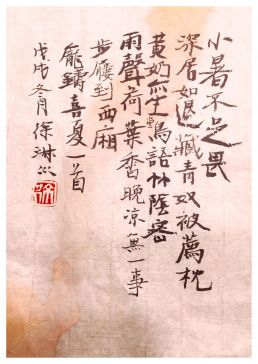 小暑不足畏
深居如退藏青奴被薦枕
黄奶亦生鳥語竹陰密
雨聲荷葉香晚凉無一事
步屧到西廂
龐鑄喜夏一首
戊戌冬月徐淋